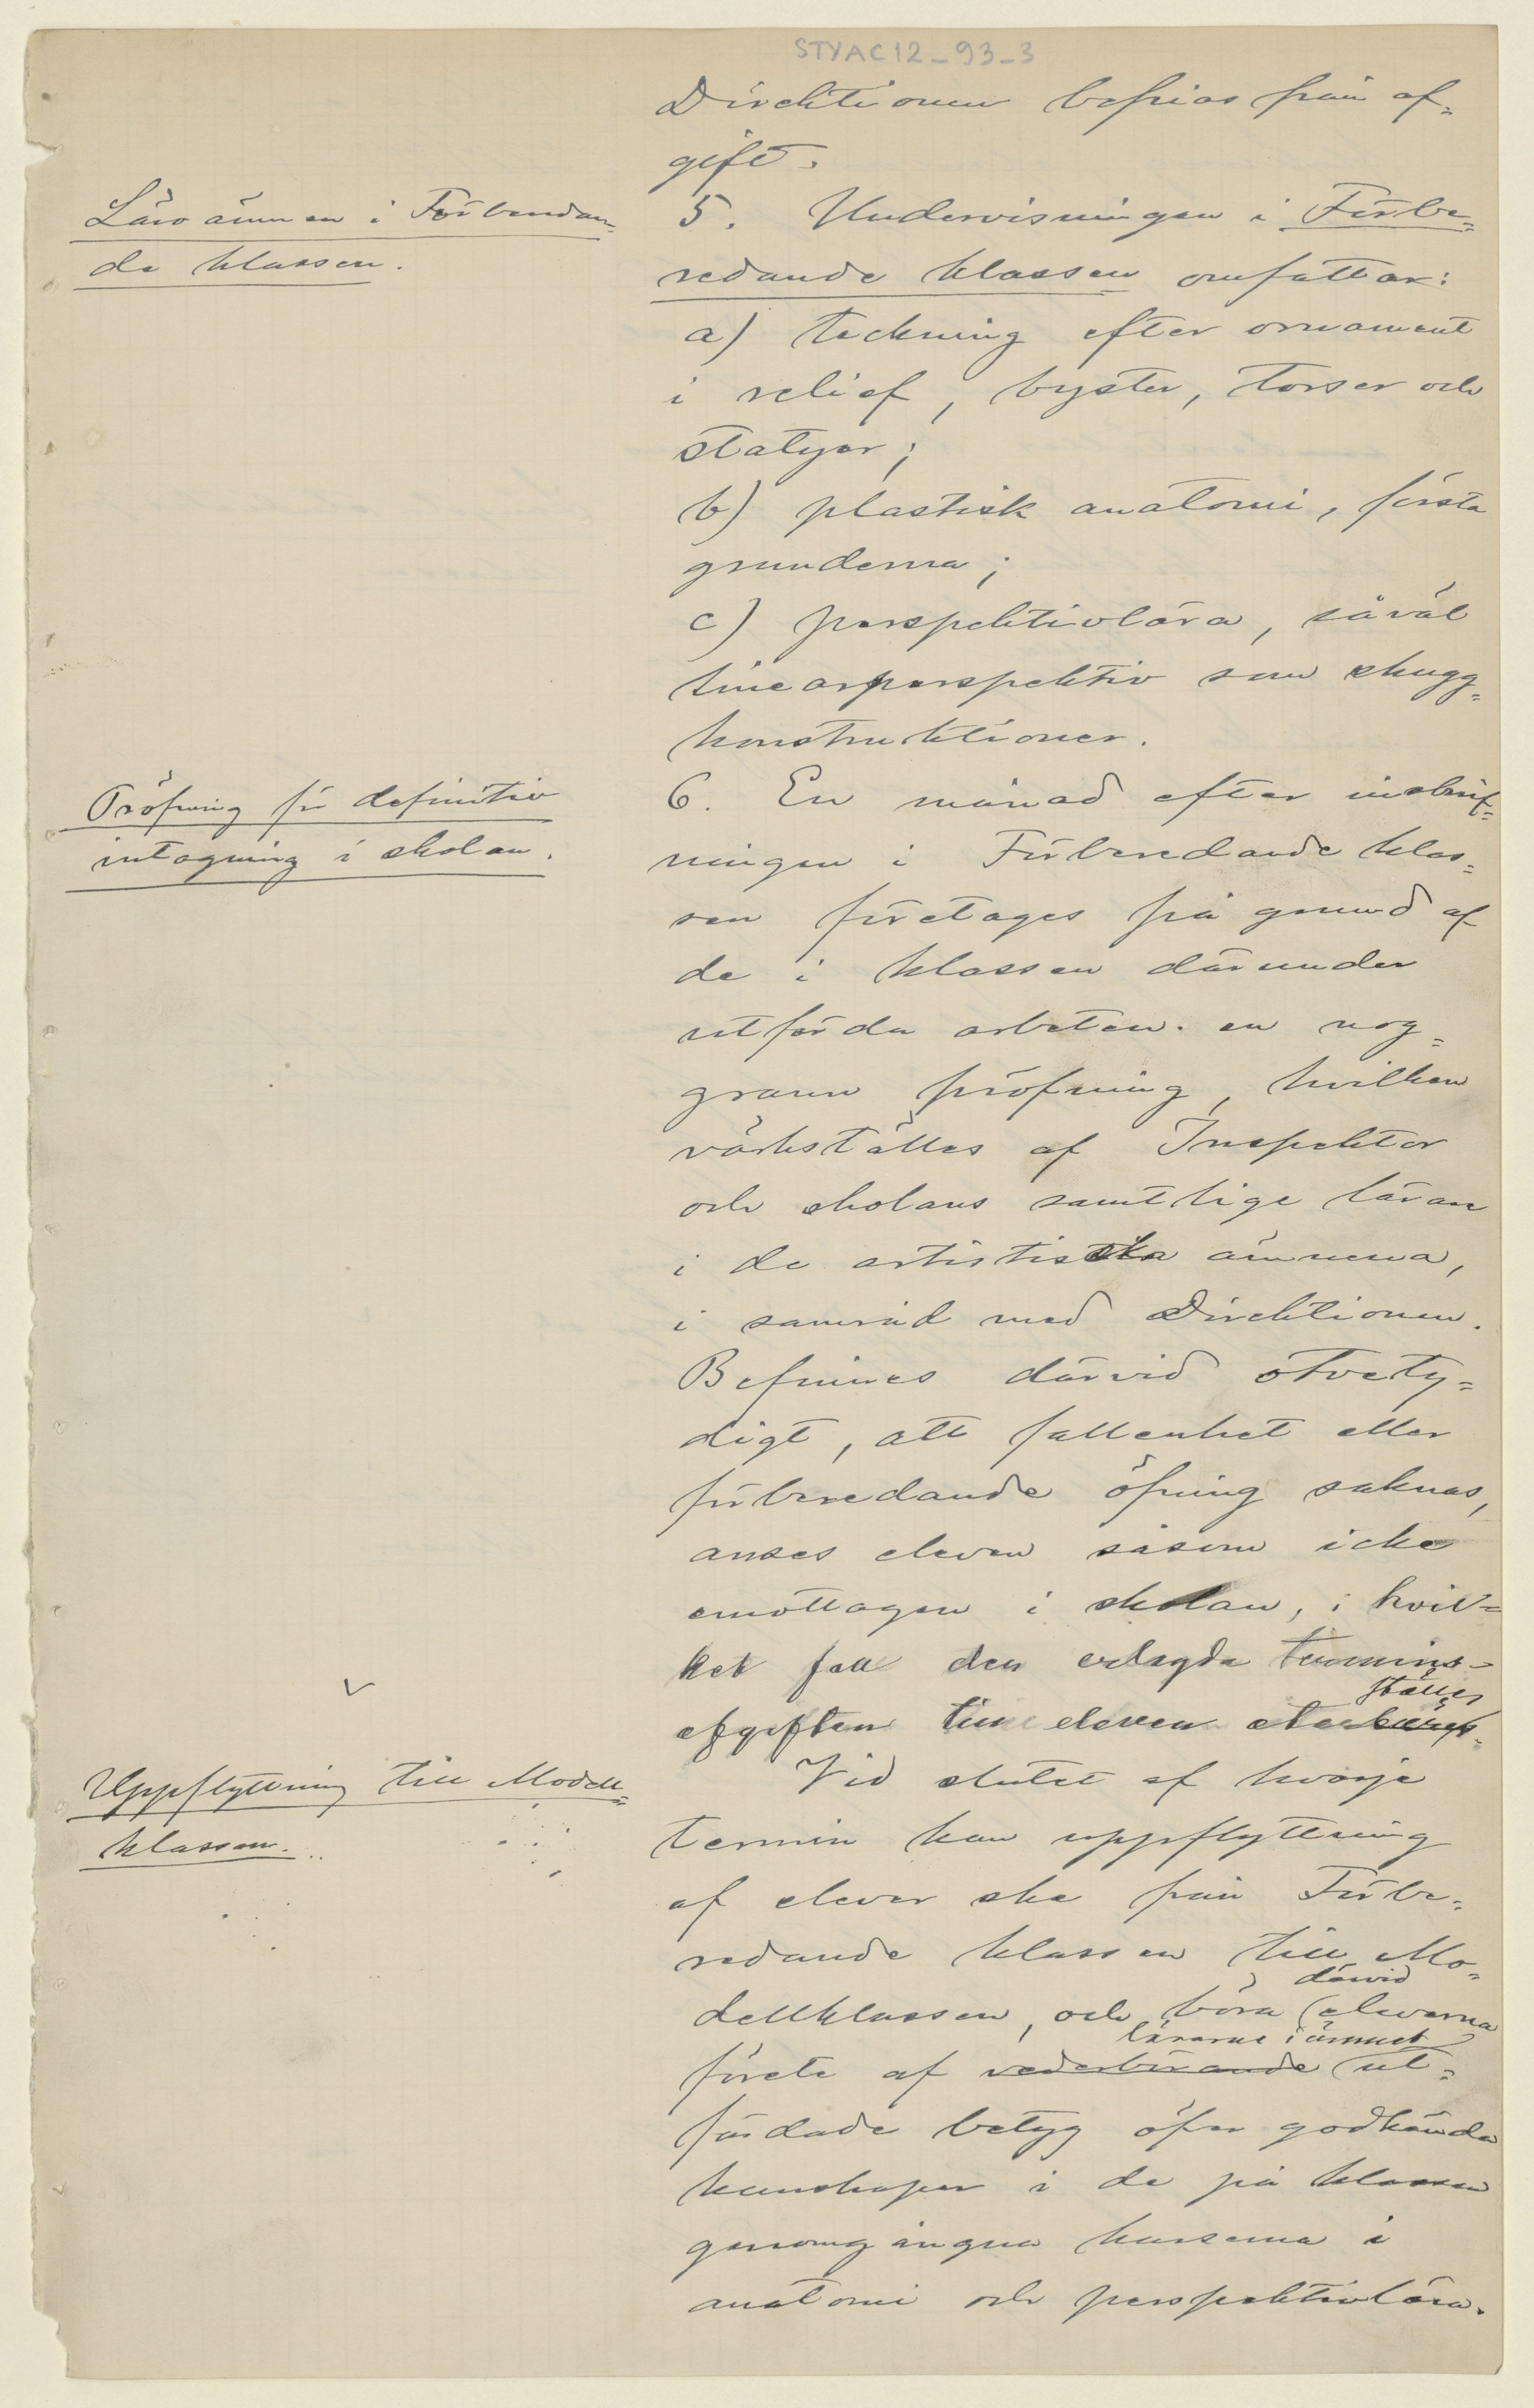 STYAC12_93_3
Direktionen befrias från af=
gift.
Läroämnen i Förberedan=
de klassen.
5. Undervisningen i Förbe=
redande klassen omfattar:
a) teckning efter ornament
i relief, byster, torser och
statyer;
b) plastisk anatomi, första
grunderna;
c) perspektivlära, såväl
linearperspektiv som skugg=
konstruktioner.
Pröfning för definitiv
intagning i skolan.
6. En månad efter inskrif=
ningen i Förberedande klas=
sen företages på grund af
de i klassen därunder
utförda arbeten en nog=
grann pröfning, hvilken
värkställes af Inspektor
och skolans samtlige lärare
i de artistiska ämnena,
i samråd med Direktionen.
Befinnes därvid otvety=
digt, att fallenhet eller
förberedande öfning saknas,
anses eleven såsom icke
emottagen i skolan, i hvil=
ket fall den erlagda termins=
ställes
afgiften till eleven åter
Uppflyttning till Modell=
klassen.
Vid slutet af hvarje
termin kan uppflyttning
af elever ske från Förbe=
redande klassen till Mo=
därvid
dellklassen, och böra (eleverna
lärarne i ämnet
förete af vederbörande (ut=
färdade betyg öfver godkända
kunskaper i de på klassen
genomgångna kurserna i
anatomi och perspektivlära.